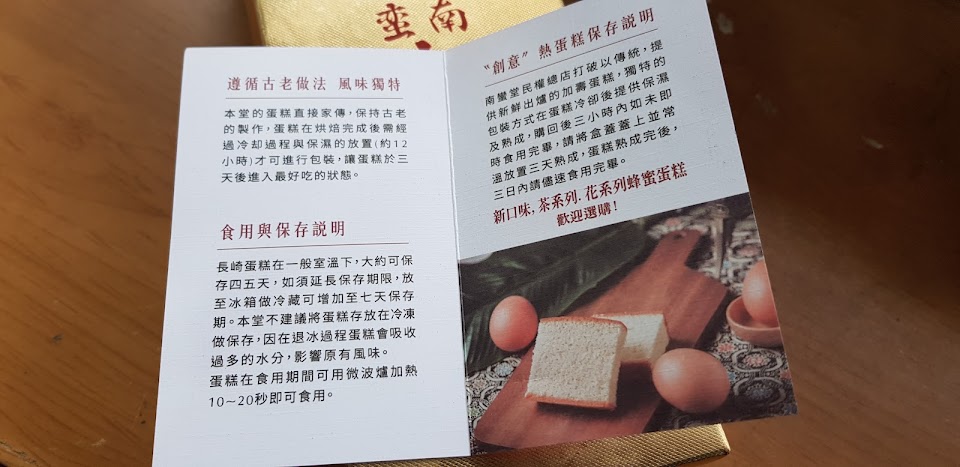 南蠻
遵循古老做法 風味獨特
本堂的蛋糕直接家傳，保持古老
的製作，蛋糕在烘焙完成後需經
過冷却過程與保濕的放置(約12
小時)才可進行包裝，讓蛋糕於三
天後進入最好吃的狀態。
食用與保存説明
長崎蛋糕在一般室溫下，大約可保
存四五天，如須延長保存期限，放
至冰箱做冷藏可增加至七天保存
期。本堂不建議將蛋糕存放在冷凍
做保存，因在退冰過程蛋糕會吸收
過多的水分，影響原有風味。
蛋糕在食用期間可用微波爐加熱
10~20秒即可食用。
“創意” 熱蛋糕保存説明
南蠻堂民權總店打破以傳統，提
供新鮮出爐的加壽蛋糕，獨特的
包裝方式在蛋糕冷卻後提供保濕
及熟成，購回後三小時內如未即
時食用完畢，請將盒蓋蓋上並常
溫放置三天熟成，蛋糕熟成完後，
三日內請儘速食用完畢。
新口味，茶系列.花系列蜂蜜蛋糕
歡迎選購！